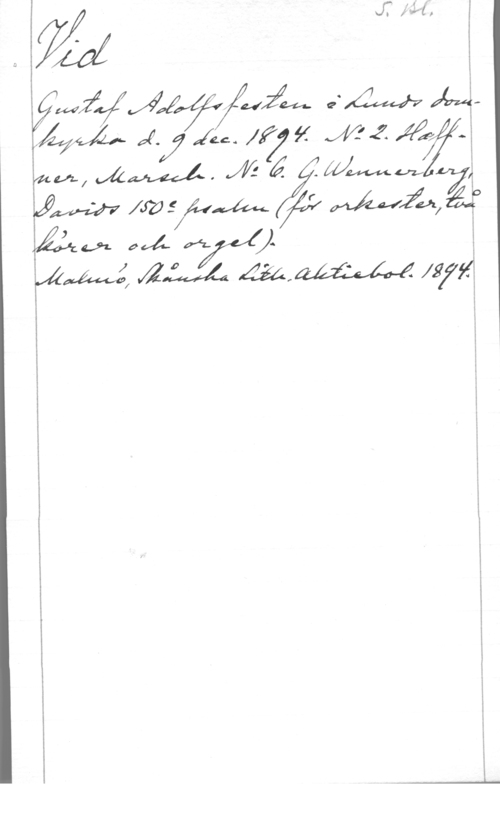 S. Bl.
Vid
Gustaf Adolfsfesten i Lunds dom-
kyrka d. 9 dec. 1894. Nº 2. Hæff-
ner, Marsch. Nº 6. G. Wennerberg,
Davids 150º psalm (för orkester, två
körer och orgel).
Malmö, Skånska Lith. aktiebol. 1894.